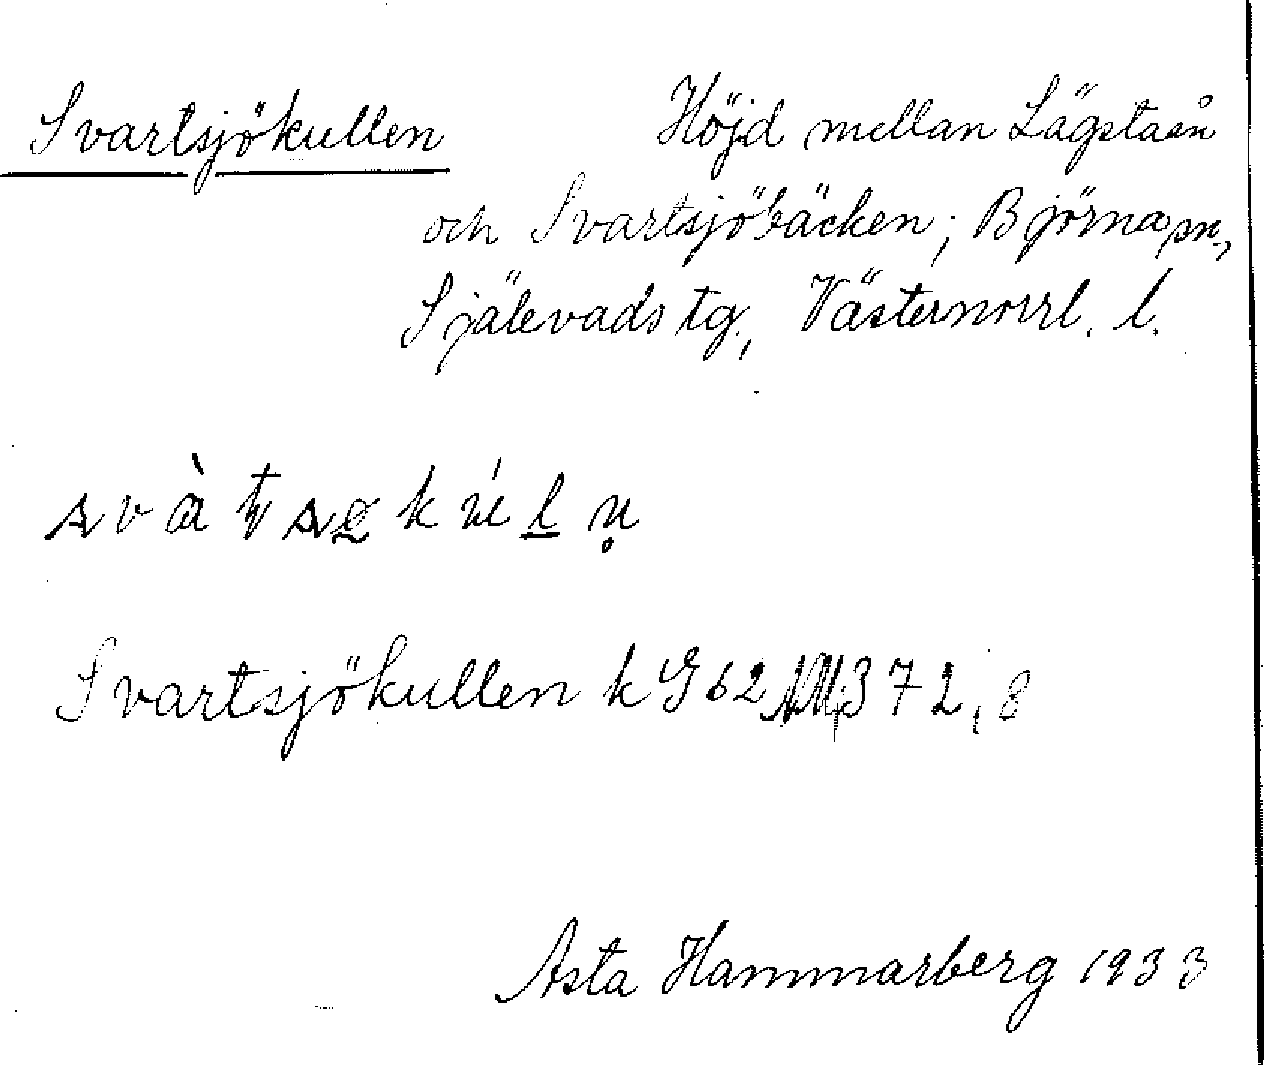 Svartsjökullen Höjd mellan Lägstaån
och Svartsjöbäcken, Björna sn,
Själevads tg, Västernorrl. l.
Svartsjökullen k G 62 372,8
Asta Hammarberg 1933